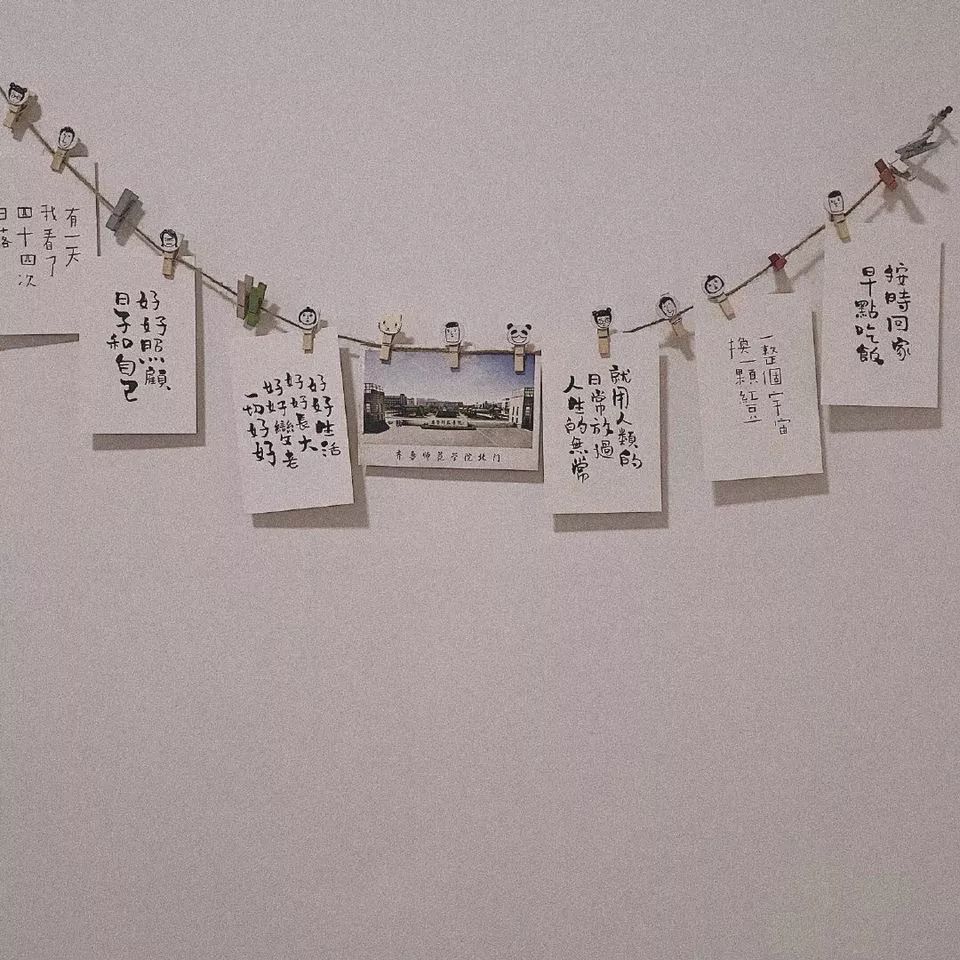 有一天
我看了
四十四次
日落
好好照顧
日子和自己
好好生活
好好長大
好好變老
一切好好
齐鲁师范学院北门
就用人類的
日常放過
人生的無常
一整個宇宙
換一顆紅豆
按時回家
早點吃飯